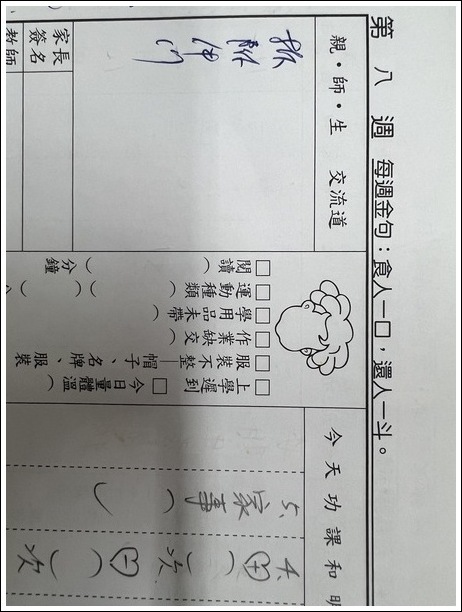 第八週 每週金句：食人一□，還人一斗。
親・師・生 交流道
家長簽名
教師
□閱讀（ ）分鐘
□運動種類（ ）（ ）
□學用品未帶
□作業缺交
□服裝不整 帽子、名牌、服裝
□上學遲到 □今日量體溫
今天功課和明
4.(+)( )次 (-)( )次
5.家事( )